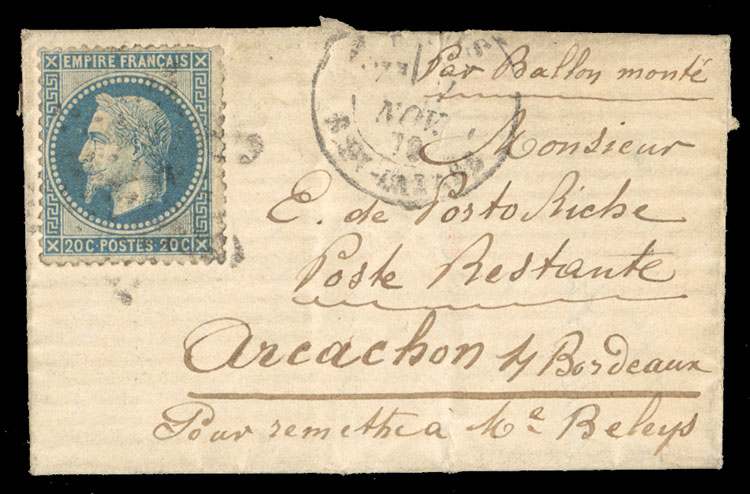 EMPIRE FRANÇAIS
20C POSTES 20C
NOV.
70
Par Ballon monté
Monsieur
E. de Porto Riche
Poste Restante
Arcachon s/ Bordeaux
Pour remettre à Me Beleys